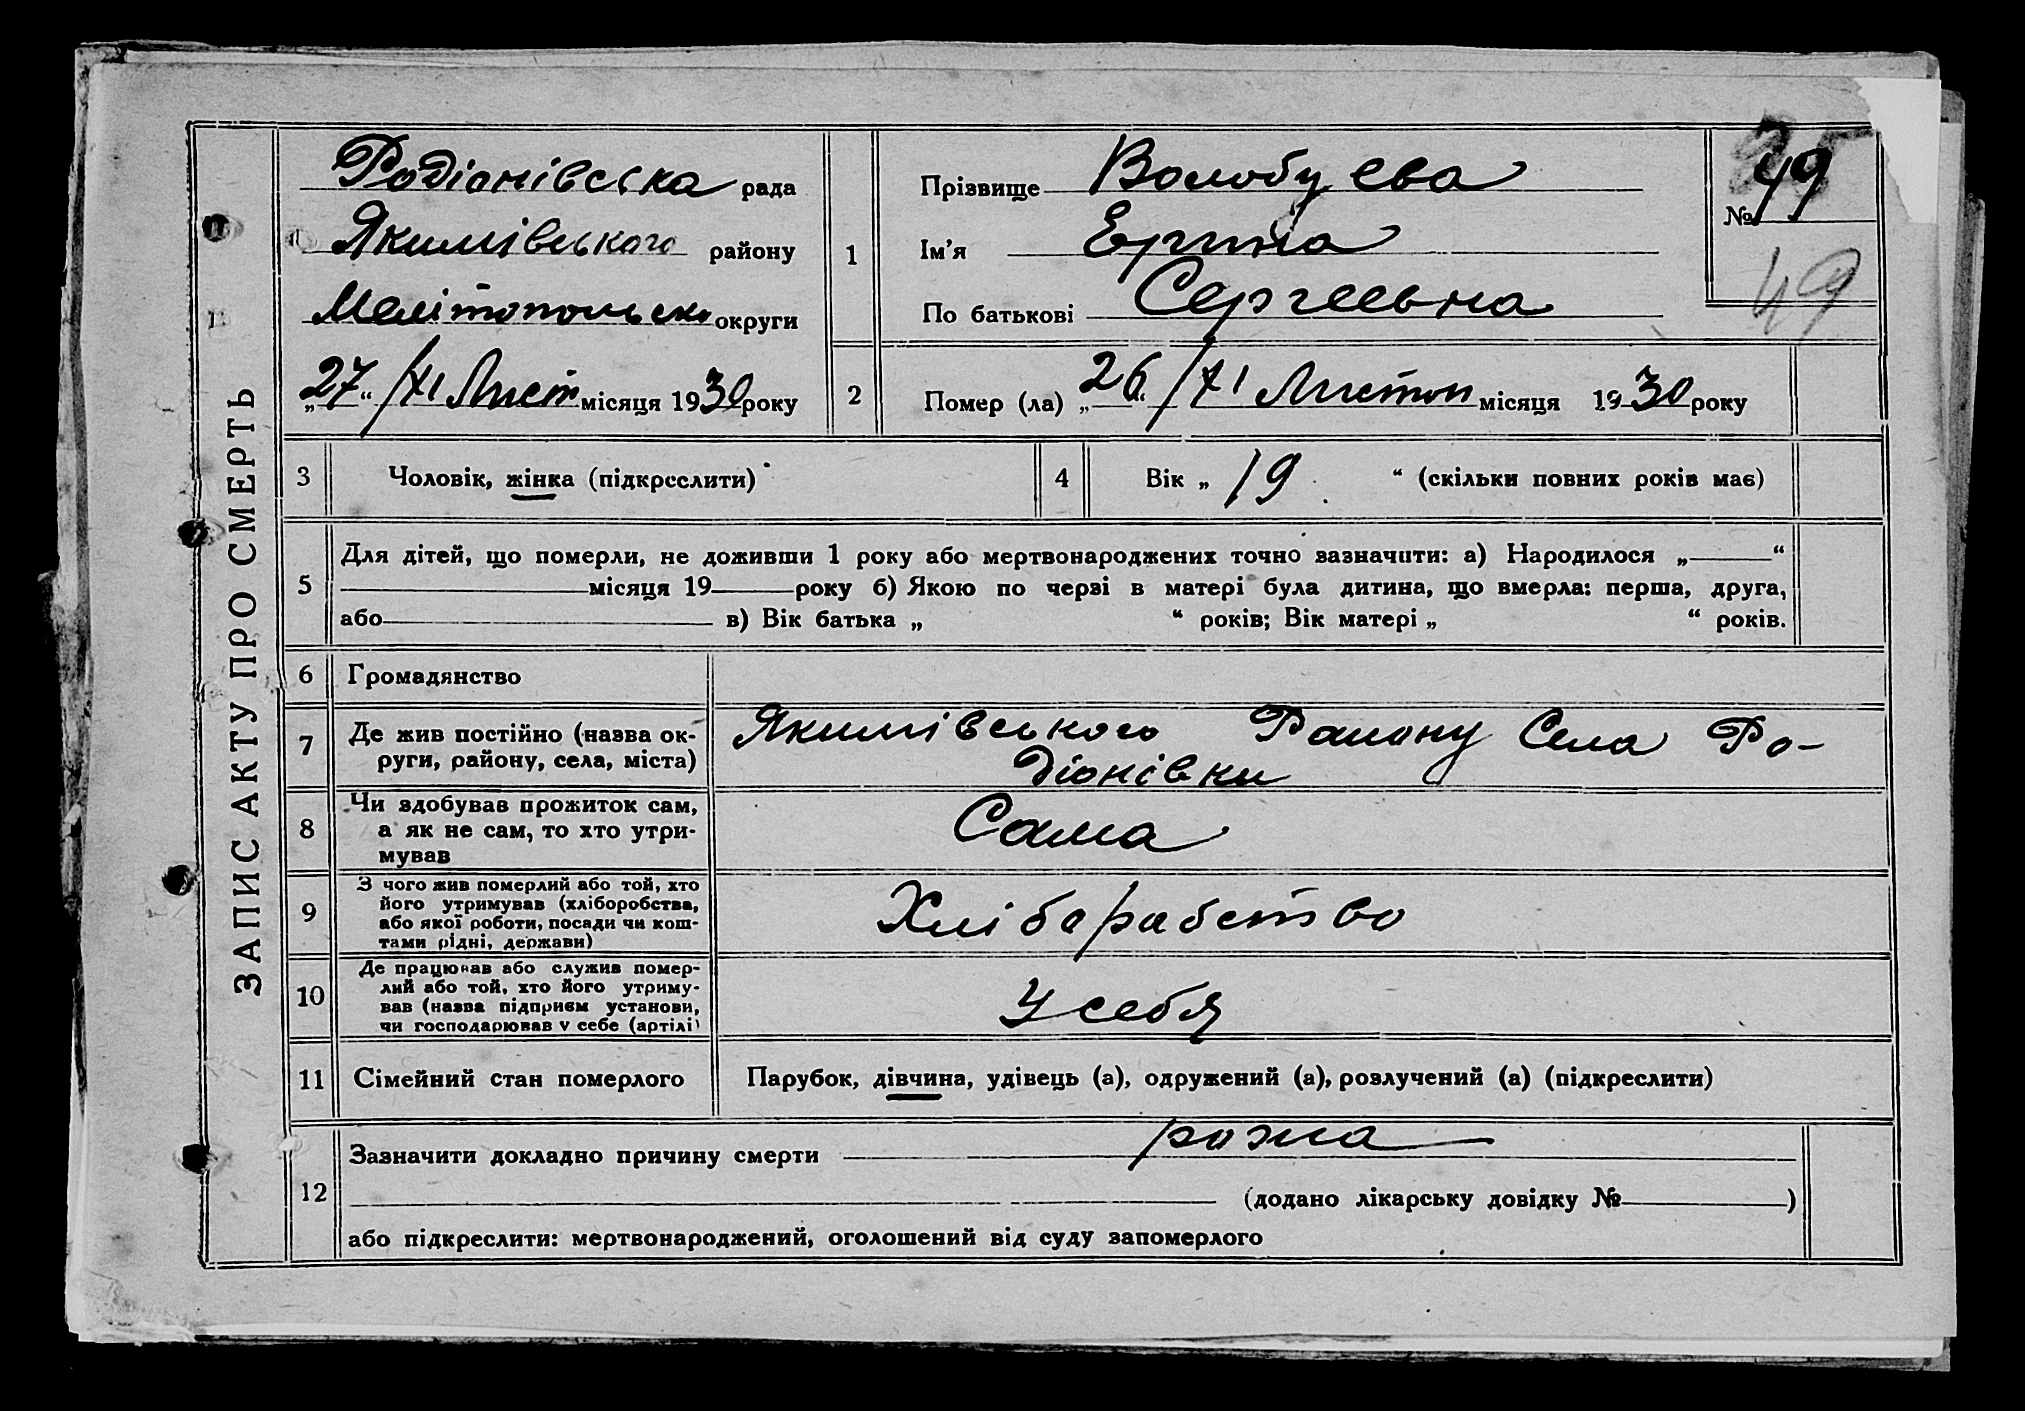 ЗАПИС АКТУ ПРО СМЕРТЬ
Родіонівська рада
Якимівського району
Мелітопольсько округи
„27“ /XI Лист місяця 1930 року
1
Прізвище Волобуева
Ім’я Ерина
По батькові Сергеевна
№ 49
49
2
Помер (ла) „26“ /XI Листоп місяця 1930 року
3 Чоловік, жінка (підкреслити)
4 Вік „ 19 “ (скільки повних років має)
5
Для дітей, що померли, не доживши 1 року або мертвонароджених точно зазначити: а) Народилося „ “
місяця 19 року б) Якою по черзі в матері була дитина, що вмерла: перша, друга,
або в) Вік батька „ “ років; Вік матері „ “ років.
6 Громадянство
7 Де жив постійно (назва ок-
руги, району, села, міста)
Якимівського Раиону Села Ро-
діонівки
8 Чи здобував прожиток сам,
а як не сам, то хто утри-
мував
Сама
9 З чого жив померлий або той, хто
його утримував (хліборобства,
або якої роботи, посади чи кош-
тами рідні, держави)
Хліборабство
10 Де працював або служив помер-
лий або той, хто його утриму-
вав (назва підприєм установи,
чи господарював у себе (артілі)
У себя
11 Сімейний стан померлого
Парубок, дівчина, удівець (а), одружений (а), розлучений (а) (підкреслити)
12
Зазначити докладно причину смерти рожа
(додано лікарську довідку № )
або підкреслити: мертвонароджений, оголошений від суду запомерлого